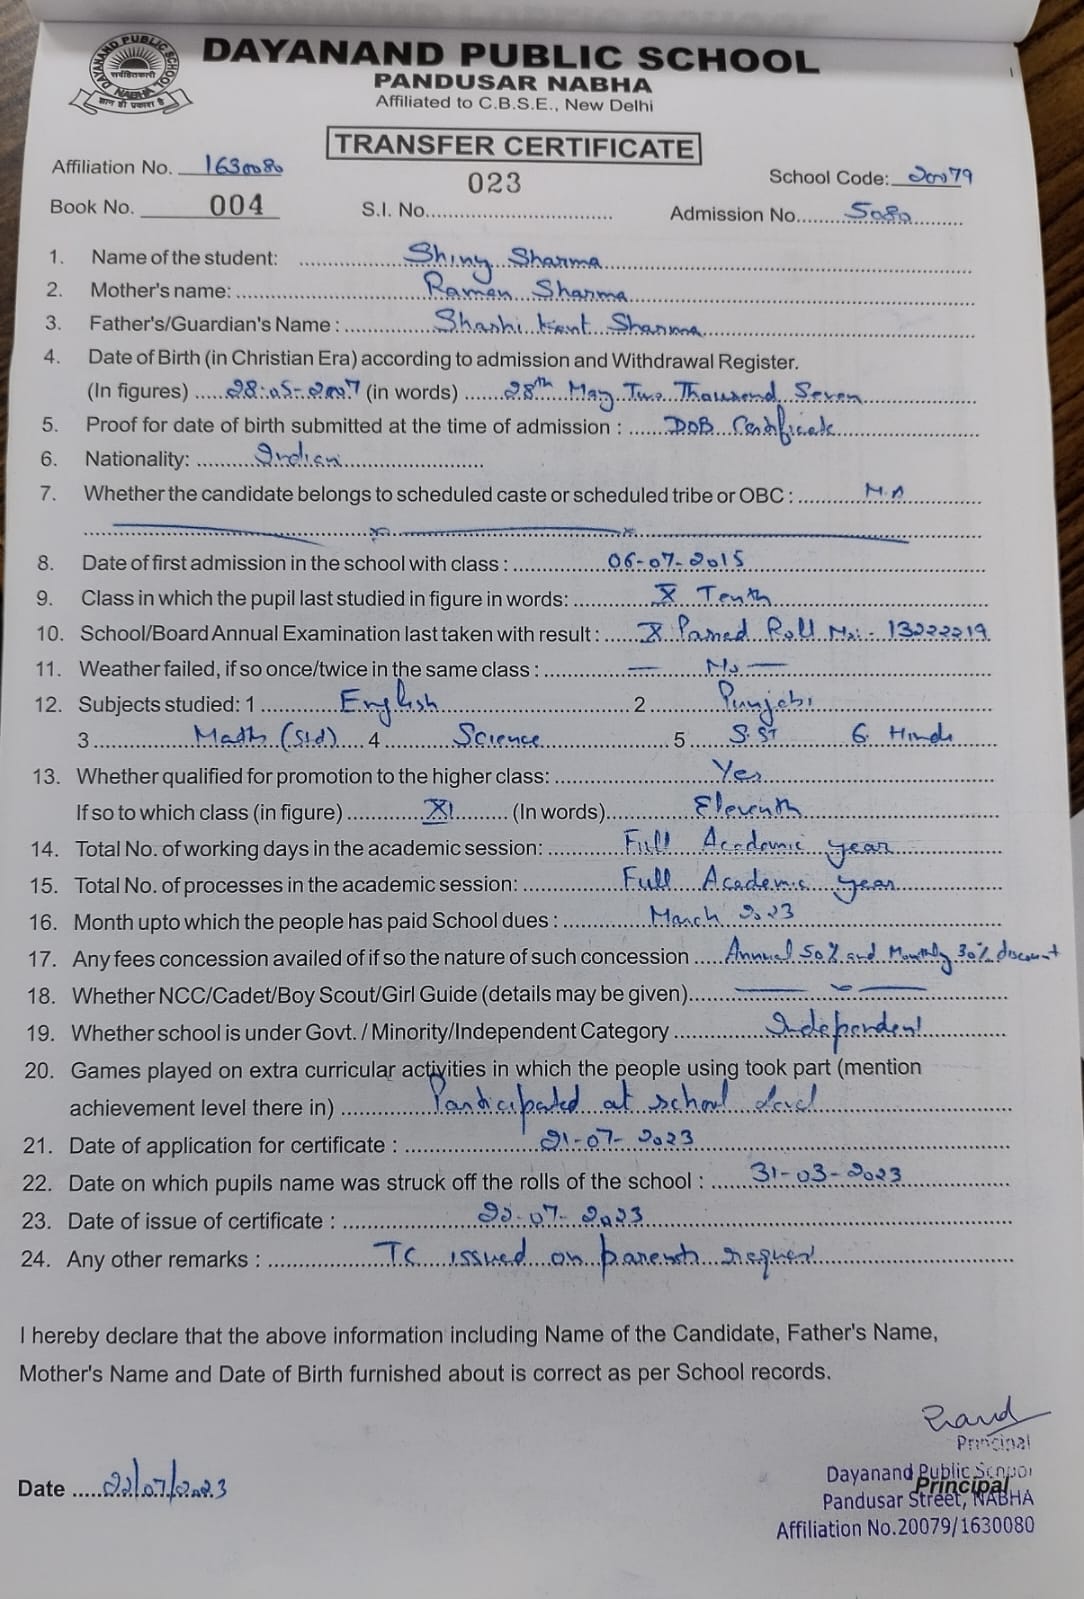 DAYANAND PUBLIC SCHOOL
PANDUSAR NABHA
Affiliated to C.B.S.E., New Delhi
DAYANAND PUBLIC SCHOOL
सर्वहितकारी
NABHA
ज्ञान ही प्रकाश है
TRANSFER CERTIFICATE
Affiliation No. 1630080
023
School Code: 20079
Book No. 004 S.I. No. Admission No. 5080
1. Name of the student: Shiny Sharma
2. Mother's name: Raman Sharma
3. Father's/Guardian's Name : Shashi Kant Sharma
4. Date of Birth (in Christian Era) according to admission and Withdrawal Register.
(In figures) 28-05-2007 (in words) 28th May Two Thousand Seven
5. Proof for date of birth submitted at the time of admission : DOB Certificate
6. Nationality: Indian
7. Whether the candidate belongs to scheduled caste or scheduled tribe or OBC : N.A
8. Date of first admission in the school with class : 06-07-2015
9. Class in which the pupil last studied in figure in words: X Tenth
10. School/Board Annual Examination last taken with result : X Passed Roll No:- 13222219
11. Weather failed, if so once/twice in the same class : — No —
12. Subjects studied: 1 English 2 Punjabi
3 Math (Std) 4 Science 5 S.ST 6 Hindi
13. Whether qualified for promotion to the higher class: Yes
If so to which class (in figure) XI (In words) Eleventh
14. Total No. of working days in the academic session: Full Academic year
15. Total No. of processes in the academic session: Full Academic year
16. Month upto which the people has paid School dues : March 2023
17. Any fees concession availed of if so the nature of such concession Annual 50% and Monthly 30% discount
18. Whether NCC/Cadet/Boy Scout/Girl Guide (details may be given)
19. Whether school is under Govt. / Minority/Independent Category Independent
20. Games played on extra curricular activities in which the people using took part (mention
achievement level there in) Participated at school level
21. Date of application for certificate : 21-07-2023
22. Date on which pupils name was struck off the rolls of the school : 31-03-2023
23. Date of issue of certificate : 22-07-2023
24. Any other remarks : TC issued on parents request
I hereby declare that the above information including Name of the Candidate, Father's Name,
Mother's Name and Date of Birth furnished about is correct as per School records.
Principal
Date 22/07/2023
Dayanand Public School
Principal
Pandusar Street, NABHA
Affiliation No.20079/1630080